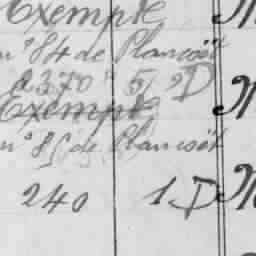 Exempté
n° 84 de Plancoët
2370 5 9D
Exempté
n° 85 de Plancoët
240 1 D